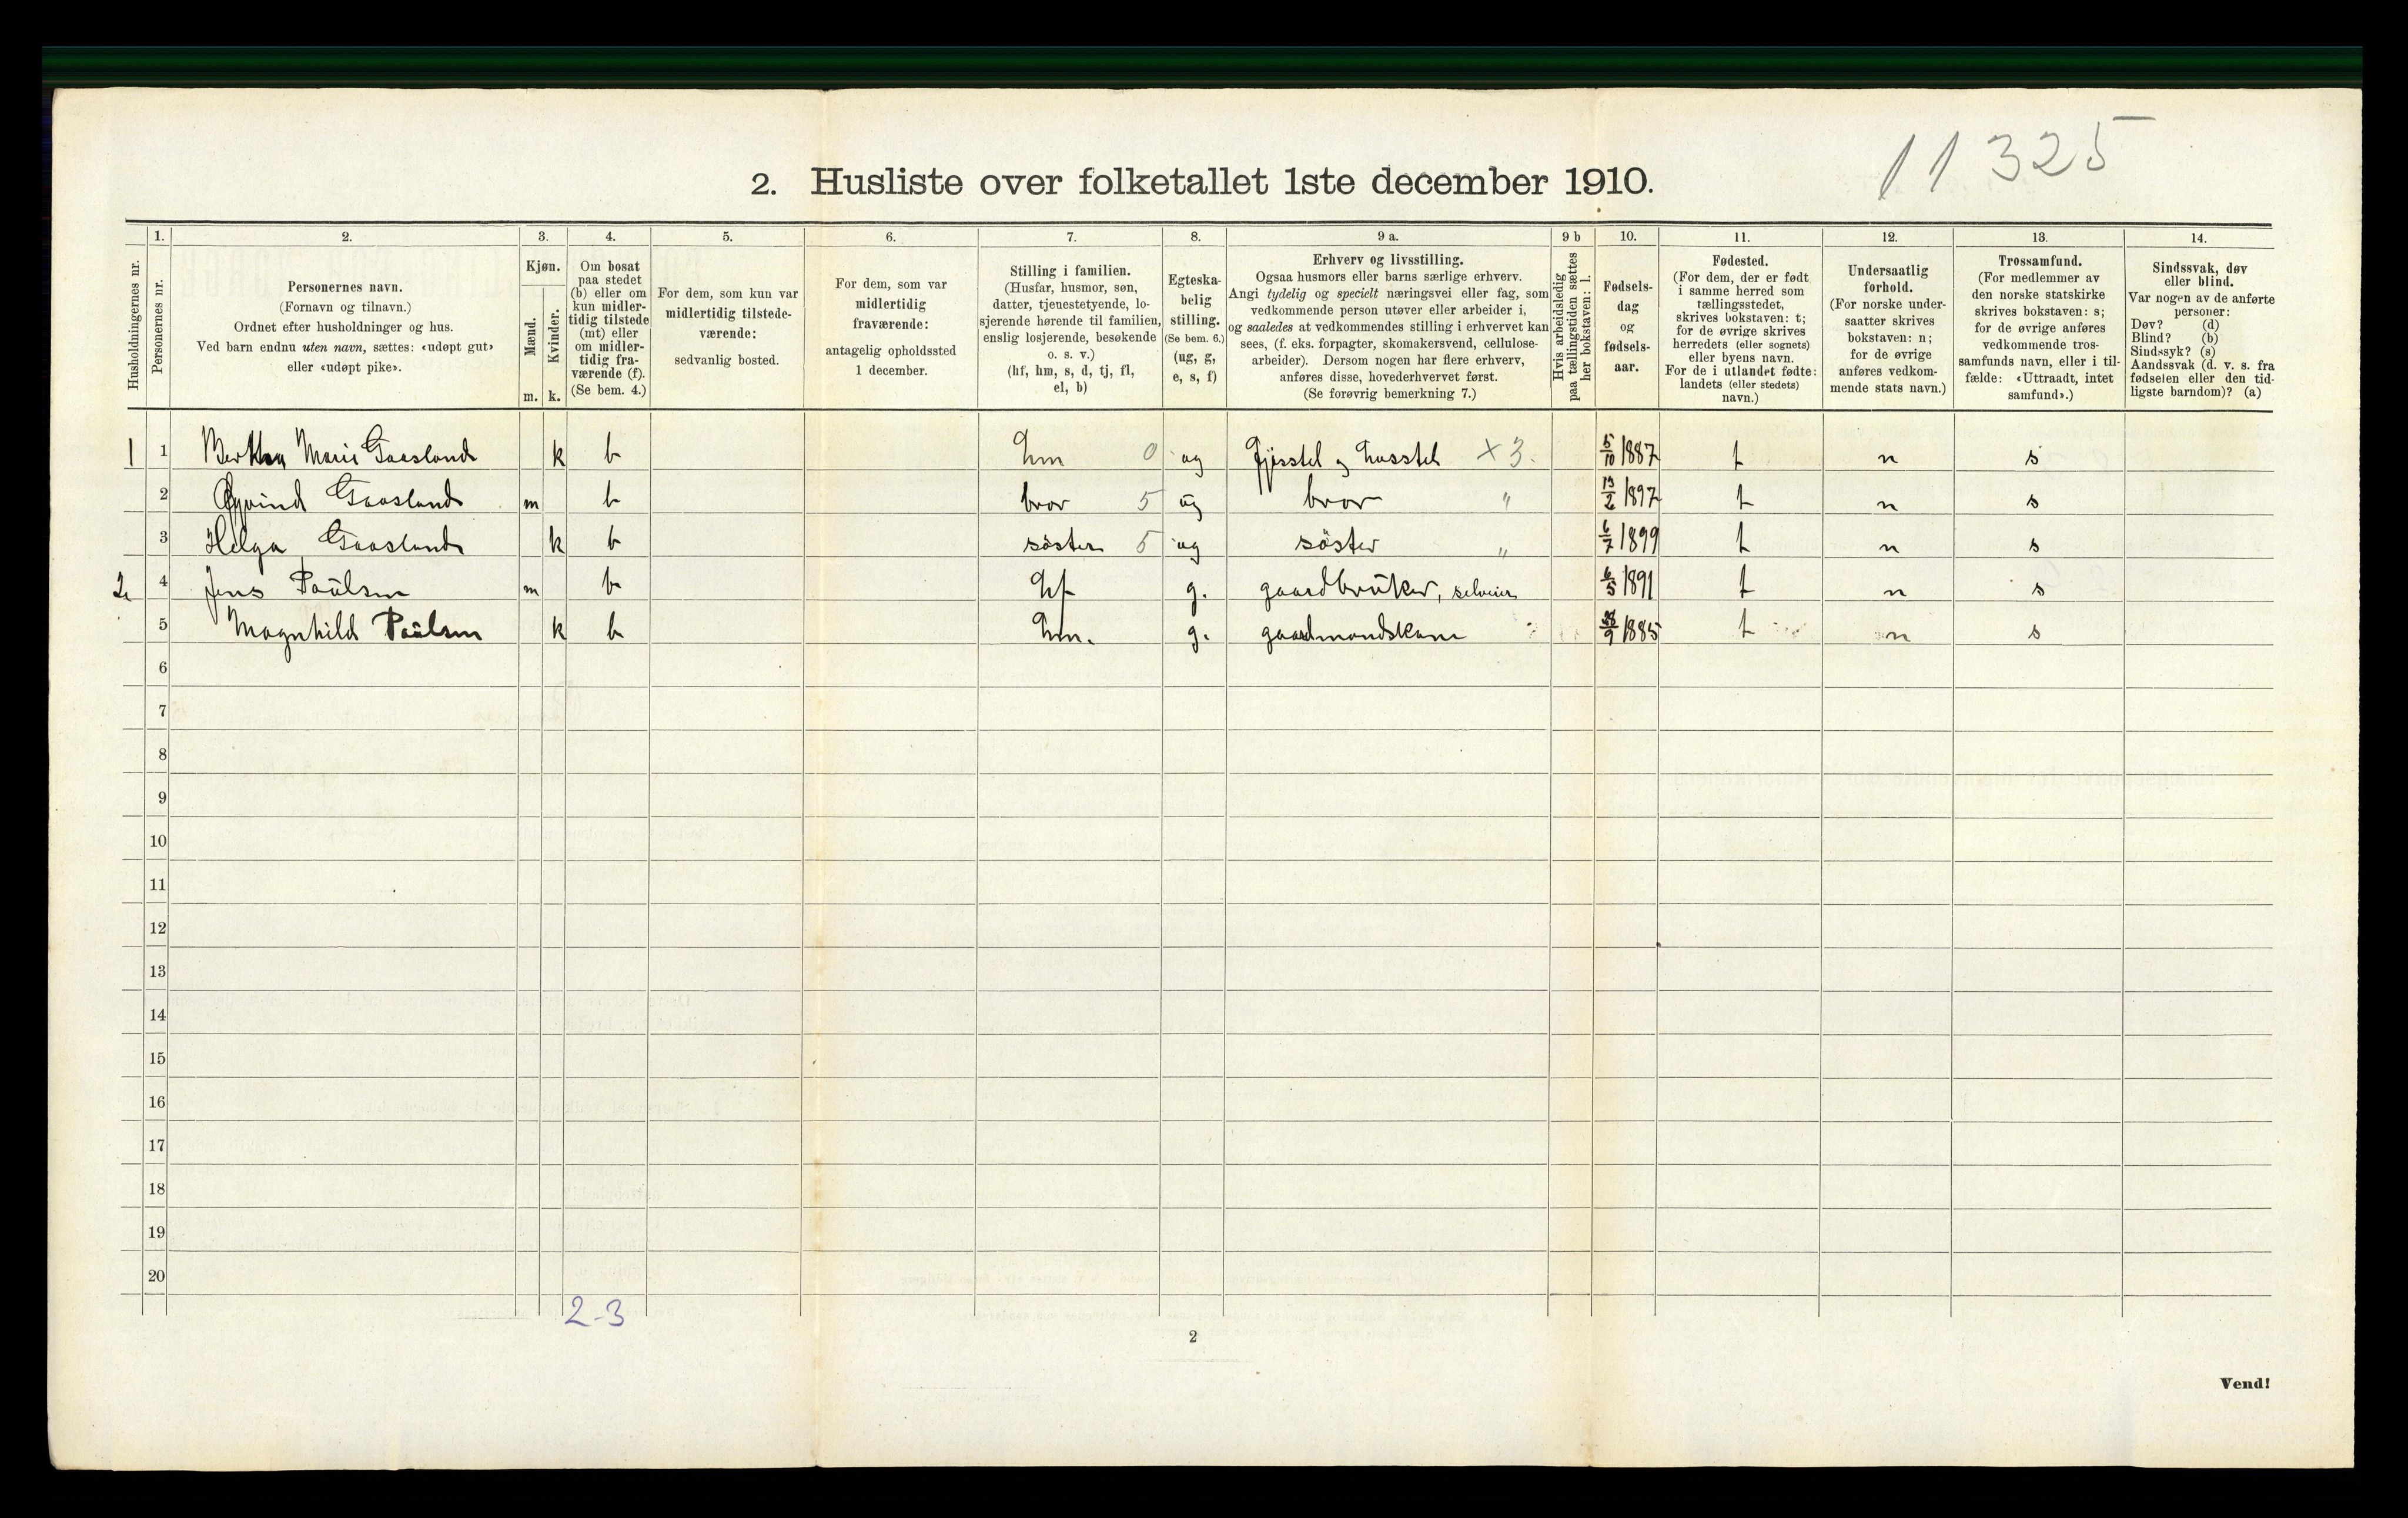 11325
2. Husliste over folketallet 1ste december 1910.
1. 2. 3. 4. 5. 6. 7. 8. 9 a. 9 b 10. 11. 12. 13. 14.
Husholdningernes nr.
Personernes nr.
Personernes navn.
(Fornavn og tilnavn.)
Ordnet efter husholdninger og hus.
Ved barn endnu uten navn, sættes: «udøpt gut»
eller «udøpt pike».
Kjøn.
Mænd.
Kvinder.
m. k.
Om bosat
paa stedet
(b) eller om
kun midler-
tidig tilstede
(mt) eller
om midler-
tidig fra-
værende (f).
(Se bem. 4.)
For dem, som kun var
midlertidig tilstede-
værende:
sedvanlig bosted.
For dem, som var
midlertidig
fraværende:
antagelig opholdssted
1 december.
Stilling i familien.
(Husfar, husmor, søn,
datter, tjenestetyende, lo-
sjerende hørende til familien,
enslig losjerende, besøkende
o. s. v.)
(hf, hm, s, d, tj, fl,
el, b)
Egteska-
belig
stilling.
(Se bem. 6.)
(ug, g,
e, s, f)
Erhverv og livsstilling.
Ogsaa husmors eller barns særlige erhverv.
Angi tydelig og specielt næringsvei eller fag, som
vedkommende person utøver eller arbeider i,
og saaledes at vedkommendes stilling i erhvervet kan
sees, (f. eks. forpagter, skomakersvend, cellulose-
arbeider). Dersom nogen har flere erhverv,
anføres disse, hovederhvervet først.
(Se forøvrig bemerkning 7.)
Hvis arbeidsledig
paa tællingstiden sættes
her bokstaven: l.
Fødsels-
dag
og
fødsels-
aar.
Fødested.
(For dem, der er født
i samme herred som
tællingsstedet,
skrives bokstaven: t;
for de øvrige skrives
herredets (eller sognets)
eller byens navn.
For de i utlandet fødte:
landets (eller stedets)
navn.)
Undersaatlig
forhold.
(For norske under-
saatter skrives
bokstaven: n;
for de øvrige
anføres vedkom-
mende stats navn.)
Trossamfund.
(For medlemmer av
den norske statskirke
skrives bokstaven: s;
for de øvrige anføres
vedkommende tros-
samfunds navn, eller i til-
fælde: «Uttraadt, intet
samfund».)
Sindssvak, døv
eller blind.
Var nogen av de anførte
personer:
Døv? (d)
Blind? (b)
Sindssyk? (s)
Aandssvak (d. v. s. fra
fødselen eller den tid-
ligste barndom)? (a)
1 1 Bertha Marie Gaasland k b hm 0 ug Fjøsstel og husstel x 3. 5/10 1887 t n s
2 Øyvind Gaasland m b bror 5 ug bror " 13/2 1897 t n s
3 Helga Gaasland k b søster 5 ug søster " 6/7 1899 t n s
2 4 Jens Paulsen m b hf g. gaardbruker, selveier 6/5 1891 t n s
5 Magnhild Paulsen k b hm. g. gaardmandskone 9 1885 t n s
6
7
8
9
10
11
12
13
14
15
16
17
18
19
20
2-3
2
Vend!